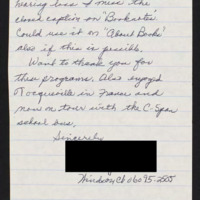 hearing loss I miss the
closed caption on "Booknotes".
Could use it on "About Books"
also if this is possible.
Want to thank you for
these programs. Also enjoyed
Tocqueville in France and
now on tour with the C-Span
school bus.
Sincerely,
Windsor, Ct 06095-2505